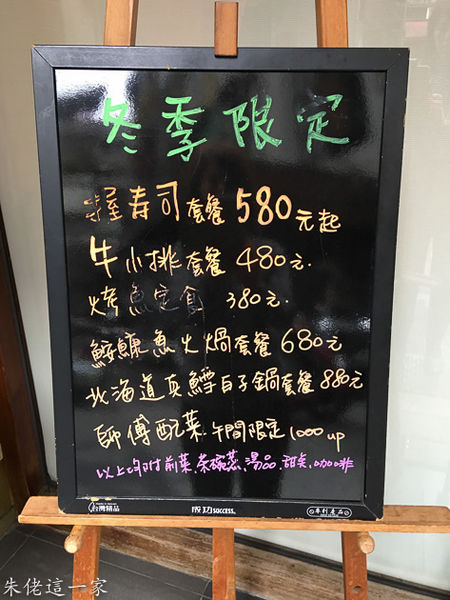 冬季限定
握壽司套餐 580元起
牛小排套餐 480元.
烤魚定食 380元
鮟鱇魚火鍋套餐 680元
北海道真鱈白子鍋套餐 880元
師傅配菜.午間限定 1000 up
以上均附前菜.茶碗蒸.湯品.甜點.咖啡
台灣精品 成功success. 專利產品
朱佬這一家